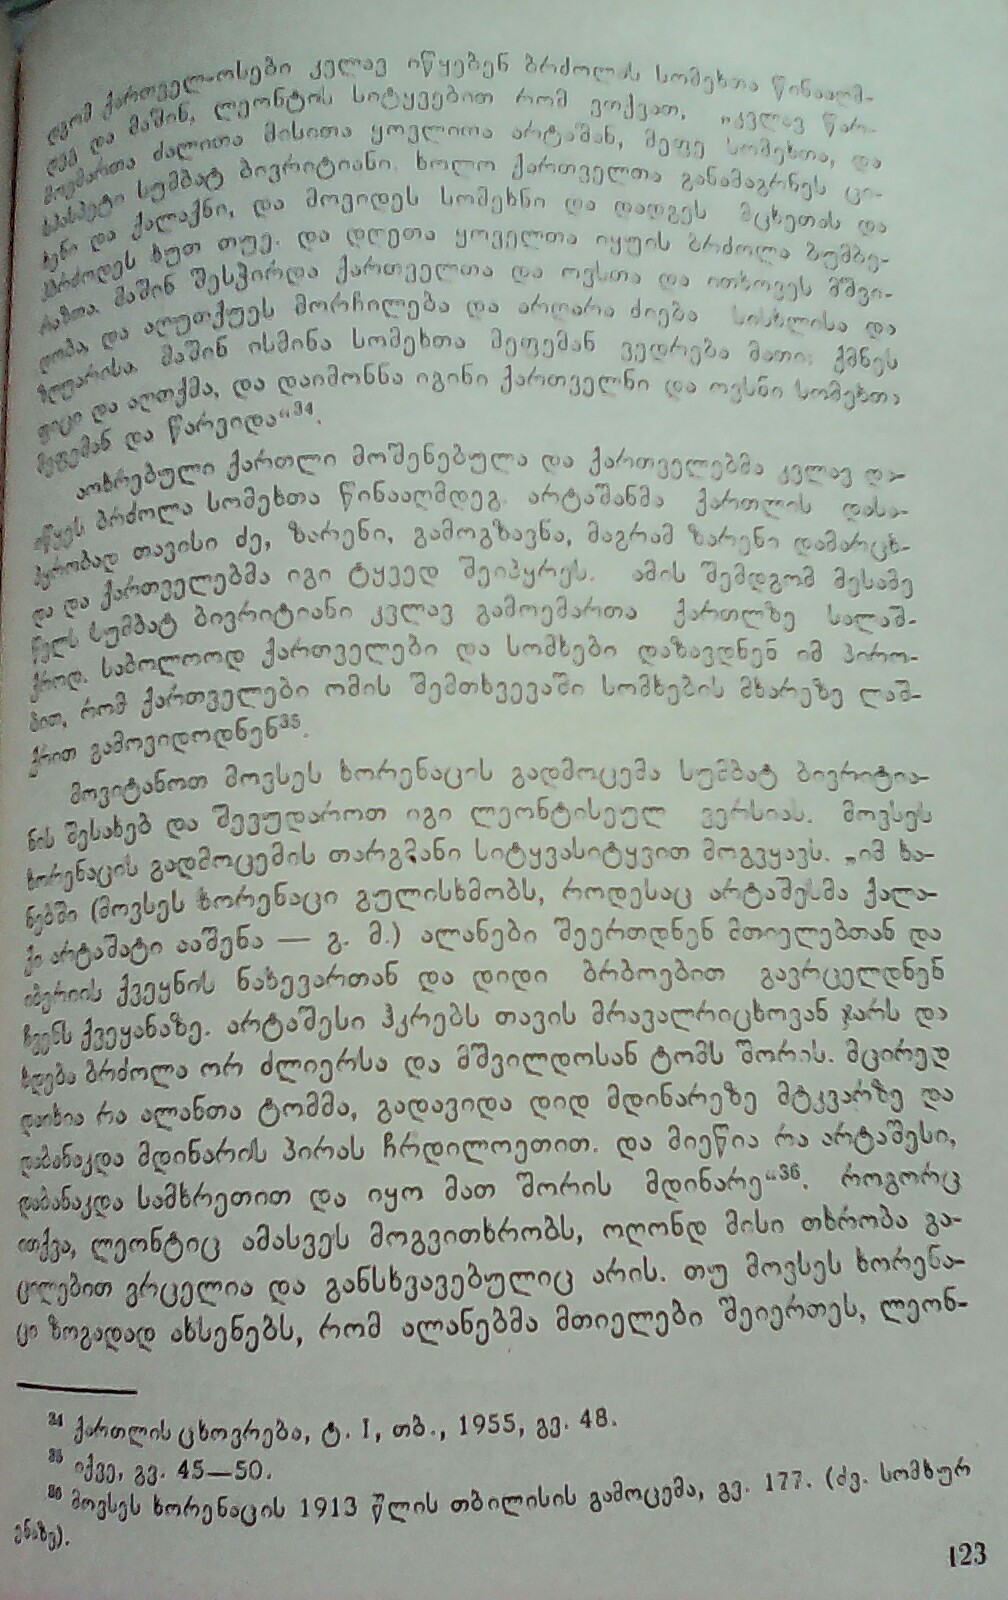 დგომ ქართველ-ოსები კვლავ იწყებენ ბრძოლას სომეხთა წინააღმ-
დეგ და მაშინ, ლეონტის სიტყვებით რომ ვთქვათ, „კვლავ წარ-
მოემართა ძალითა მისითა ყოვლითა არტაშან, მეფე სომეხთა, და
სპასპეტი სუმბატ ბივრიტიანი. ხოლო ქართველთა განამაგრნეს ცი-
ხენი და ქალაქნი, და მოვიდეს სომეხნი და დადგეს მცხეთას და
ჰბრძოდეს ხუთ თუე. და დღეთა ყოველთა იყუის ბრძოლა ბუმბე-
რაზთა. მაშინ შესჭირდა ქართველთა და ოვსთა და ითხოვეს მშვი-
დობა, და აღუთქუეს მორჩილება და არღარა ძიება სისხლისა და
ზღვარისა. მაშინ ისმინა სომეხთა მეფემან ვედრება მათი: ქმნეს
ფიცი და აღთქმა, და დაიმონნა იგინი ქართველნი და ოვსნი სომეხთა
მეფემან და წარვიდა“³⁴.
აოხრებული ქართლი მოშენებულა და ქართველებმა კვლავ და-
იწყეს ბრძოლა სომეხთა წინააღმდეგ. არტაშანმა ქართლის დასა-
პყრობად თავისი ძე, ზარენი, გამოგზავნა, მაგრამ ზარენი დამარცხ-
და და ქართველებმა იგი ტყვედ შეიპყრეს. ამის შემდგომ მესამე
წელს სუმბატ ბივრიტიანი კვლავ გამოემართა ქართლზე სალაშ-
ქროდ. საბოლოოდ ქართველები და სომხები დაზავდნენ იმ პირო-
ბით, რომ ქართველები ომის შემთხვევაში სომხების მხარეზე ლაშ-
ქრით გამოვიდოდნენ³⁵.
მოვიტანოთ მოვსეს ხორენაცის გადმოცემა სუმბატ ბივრიტია-
ნის შესახებ და შევუდაროთ იგი ლეონტისეულ ვერსიას. მოვსეს
ხორენაცის გადმოცემის თარგმანი სიტყვასიტყვით მოგვყავს. „იმ ხა-
ნებში (მოვსეს ხორენაცი გულისხმობს, როდესაც არტაშესმა ქალა-
ქი არტაშატი ააშენა — გ. მ.) ალანები შეერთდნენ მთიელებთან და
იბერიის ქვეყნის ნახევართან და დიდი ბრბოებით გავრცელდნენ
ჩვენს ქვეყანაზე. არტაშესი ჰკრებს თავის მრავალრიცხოვან ჯარს და
ხდება ბრძოლა ორ ძლიერსა და მშვილდოსან ტომს შორის. მცირედ
დაიხია რა ალანთა ტომმა, გადავიდა დიდ მდინარეზე მტკვარზე და
დაბანაკდა მდინარის პირას ჩრდილოეთით. და მიეწია რა არტაშესი,
დაბანაკდა სამხრეთით და იყო მათ შორის მდინარე“³⁶. როგორც
ითქვა, ლეონტიც ამასვეს მოგვითხრობს, ოღონდ მისი თხრობა გა-
ცილებით ვრცელია და განსხვავებულიც არის. თუ მოვსეს ხორენა-
ცი ზოგადად ახსენებს, რომ ალანებმა მთიელები შეიერთეს, ლეონ-
³⁴ ქართლის ცხოვრება, ტ. I, თბ., 1955, გვ. 48.
³⁵ იქვე, გვ. 45—50.
³⁶ მოვსეს ხორენაცის 1913 წლის თბილისის გამოცემა, გვ. 177. (ძვ. სომხურ
ენაზე).
123